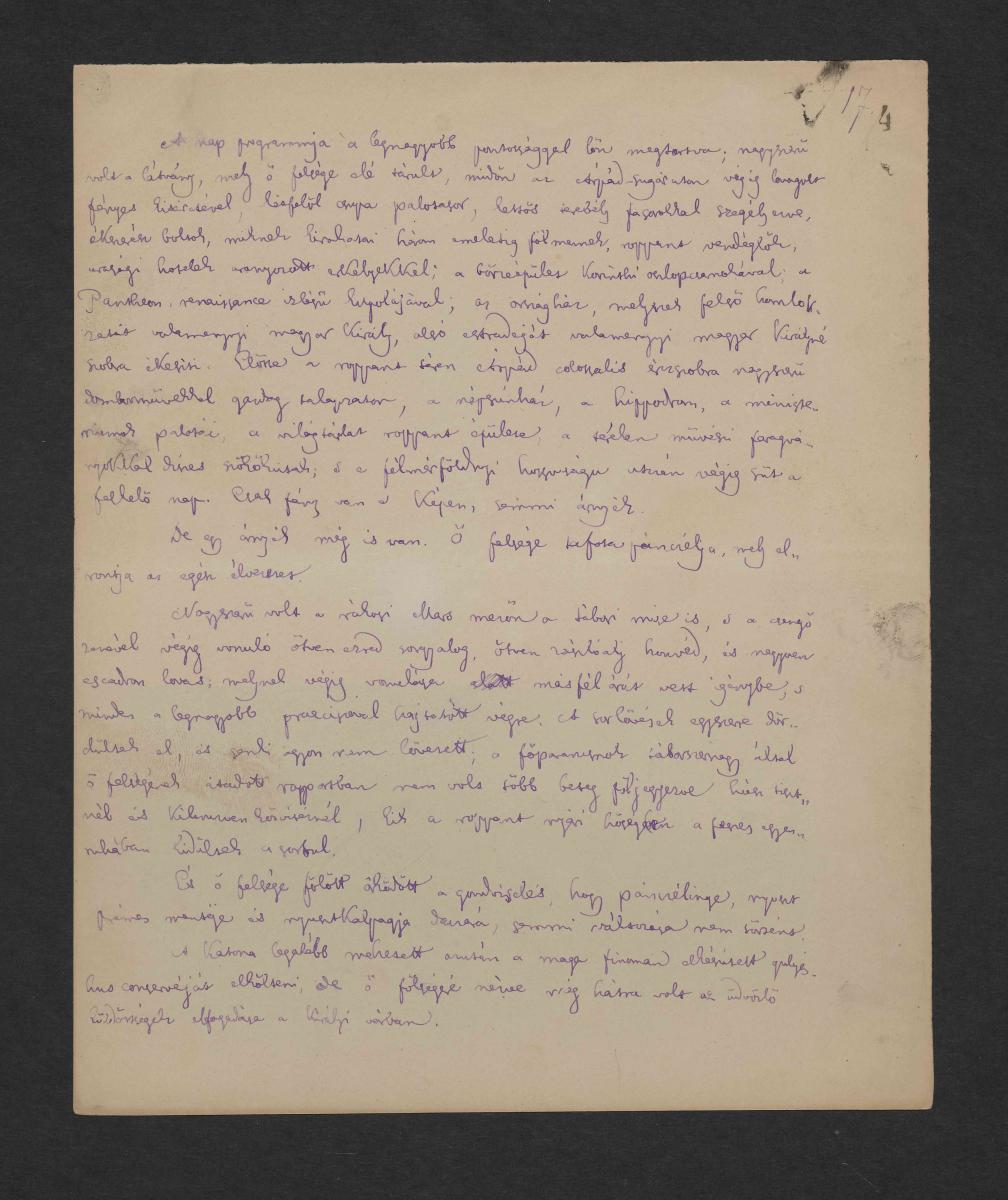 17 4
A nap programmja a legnagyobb pontossággal lőn megtartva; nagyszerű
volt a látvány, mely ő felsége elé tárult, midőn az Árpád-sugáruton végig lovagolt
fényes kiséretével, kétfelöl csupa palotasor, kettős terebély fasorokkal szegélyezve,
ékszerész boltok, miknek kirakatai három emeletig fölmennek, roppant vendéglők,
urasági hotelek aranyozott erkélyekkel; a börzeépület korinthi oszlopcsarnokával; a
Pantheon, renaissance izlésü kupolájával; az országház, melynek felső homlok-
zatát valamennyi magyar király, alsó estradeját valamennyi magyar királyné
szobra ékesiti. Előtte a roppant téren Árpád colossalis érczszobra nagyszerű
domborművekkel gazdag talapzaton, a népszínház, a hippodrom, a ministe-
riumok palotái, a világtárlat roppant épülete, a téreken művészi faragvá-
nyokkal díszes szökőkútak; s e félmérföldnyi hosszuságu utczán végig süt a
felkelő nap. Csak fény van a képen, semmi árnyék.
De egy árnyék még is van. Ő felsége tafota pánczélja, mely el-
rontja az egész élvezetet.
Nagyszerű volt a rákosi Mars mezőn a tábori mise is, s a csengő
zenével végig vonuló ötven ezred sorgyalog, ötven zászlóalj honvéd, és negyven
escadron lovas; melynek végig vonulása másfél órát vett igénybe, s
minden a legnagyobb praecisioval hajtatott végre. A sorlövések egyszerre dör-
dültek el, és senki agyon nem lövetett; a főparancsnok tábornagy által
ő felségének átadott rapportban nem volt több beteg följegyezve húsz tiszt-
nél és kilenczven közvitéznél, kik a roppant nyári hőségben a feszes egyen-
ruhában kidültek a sorbul.
És ő felsége fölött őködött a gondviselés, hogy pánczélinge, nyuszt
prémes mentéje és nyusztkalpagja daczára, semmi változása nem történt.
A katona legalább mehetett azután a maga finoman elkészitett gulyás-
hus conservéját elkölteni, de ő fölségére nézve még hátra volt az üdvözlő
küldöttségek elfogadása a királyi várban.